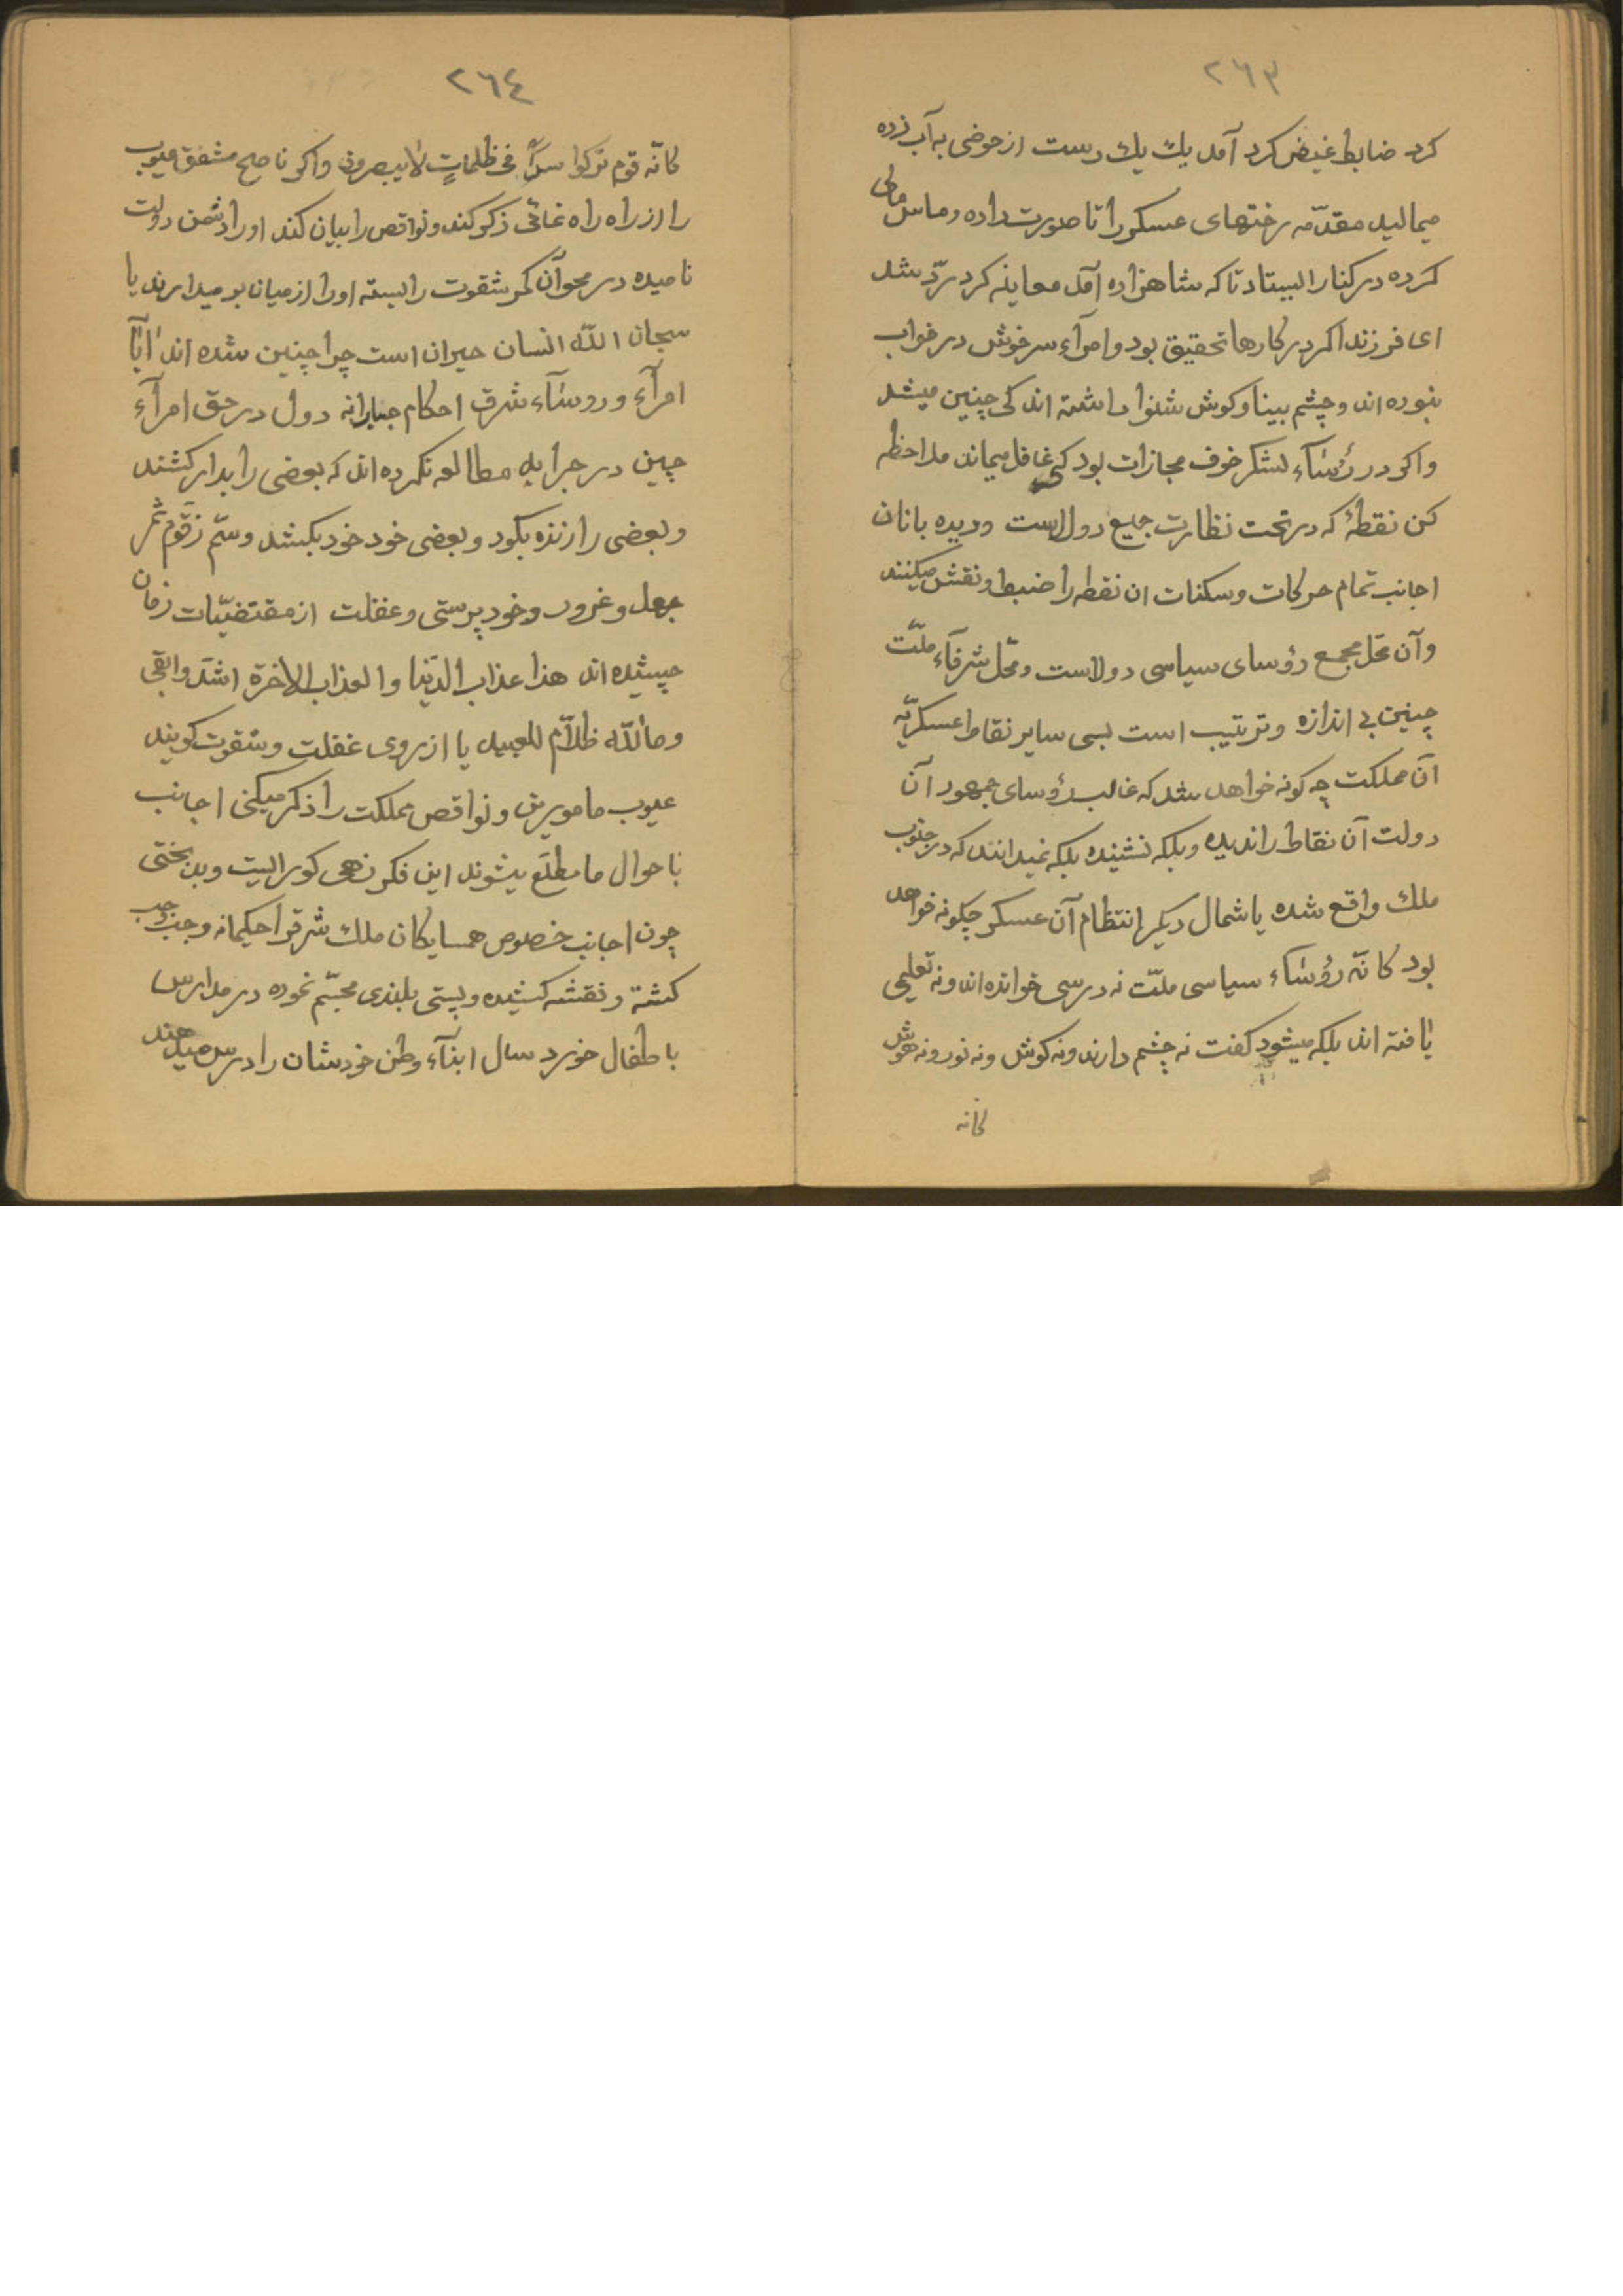 ٢٦٣
کرد ضابط غیض کرد آمد یك یك دست از حوضی به آب زده
میمالید مقدّمه رختهای عسکر را تا صورت داده
کرده در کنار ایستاد تا که شاهزاده آمد معاینه کرد ردّ شد
ای فرزند اکر در کارها تحقیق بود و امرآء سرخوش در خواب
نبوده اند و چشم بینا و کوش شنوا داشته اند کی چنین میشد
واکر در رؤسَآء لشکر خوف مجازات بود کی غافل میماند ملاحظه
کن نقطۀ که در تحت نظارت جمیع دول است و دیده بانان
اجانب تمام حرکات و سکنات ان نقطه را ضبط و نقش میکنند
وآن محَل مجمع رؤسای سیاسی دولاست و محَل شرفآء ملّت
چنین بی اندازه و ترتیب است بسی سایر نقاط عسکریّه
آن مملکت چه کونه خواهد شد که غالب رؤسای جمهور آن
دولت آن نقاط را ندیده و بلکه نشنیده بلکه نمیدانند که در جنوب
ملك واقع شده یا شمال دیکر انتظام آن عسکر چکونه خواهد
بود کانّه رؤسَآء سیاسی ملّت نه درسی خوانده اند و نه تعلیمی
یافته اند بلکه میشود کفت نه چشم دارند و نه کوش و نه نور و نه هوش
کانه
٢٦٤
کانّه قوم ترکوا سدًا فی ظلماتٍ لایبصرون واکر ناصح مشفق عیوب
را از راه راه نمائی ذکر کند و نواقص را بیان کند او را دشمن دولت
نامیده در محو آن کمر شقوت را بسته او را از میان بر میدارند یا
سبحان اللّه انسان حیران است چرا چنین شده اند ایّا
امرآء و روسَآء شرق احکام جبارانه دول در حق امرآء
چین در جراید مطالعه نکرده اند که بعضی را بدار کشند
و بعضی را زنده بکود و بعضی خود خود بکشد و سّم زقّوم ثمر
جهل و غرور و خود پرستی و غفلت از مقتضیّات زمان
چشیده اند هذا عذاب الدّنیا و العذاب الاخرة اشدّ وابقی
وماللّه ظلّام للعبید یا از روی غفلت و شقوت کویند
عیوب مامورین و نواقص مملکت را ذکر میکنی اجانب
باحوال ما مطلّع یشوند این فکر نهی کور الیت و بدبختی
چون اجانب خصوص همسایکان ملك شرقرا حکیمانه وجب وجب
کشته و نقشه کشیده و پستی بلندی مجسّم نموده در مدارس
باطفال خورد سال ابنآء وطن خودشان را درس میدهند